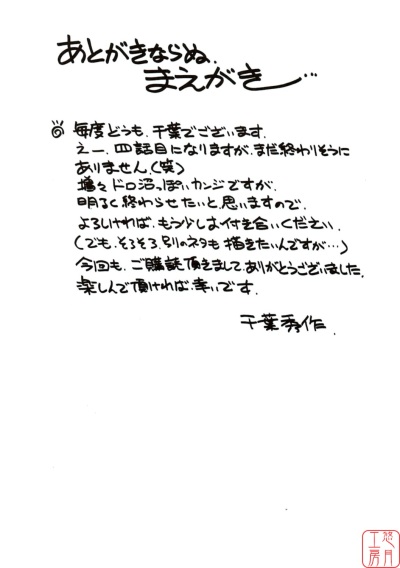 あとがきならぬ、
まえがき…
◎ 毎度どうも、千葉でございます。
えー、四話目になりますが、まだ終わりそうに
ありません。(笑)
増々ドロ沼っぽいカンジですが、
明るく終わらせたいと思いますので、
よろしければ、もう少しお付き合いください。
(でも、そろそろ別のネタも描きたいんですが…)
今回も、ご購読頂きまして、ありがとうございました。
楽しんで頂ければ、幸いです。
千葉秀作.
悠月工房